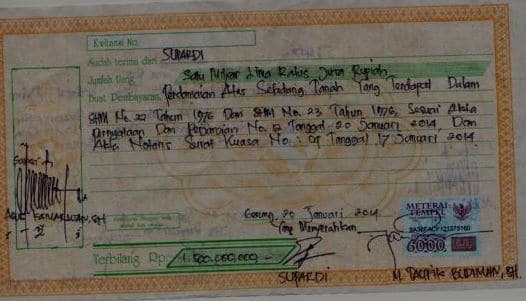 Kwitansi No.
Sudah terima dari SUPARDI
Jumlah Uang Satu Milyar Lima Ratus Juta Rupiah
Buat Pembayaran Perdamaian Atas Sebidang Tanah Yang Terdapat Dalam
SHM No. 22 Tahun 1976 Dan SHM No. 23 Tahun 1976, Sesuai Akta
Pernyataan Dan Perjanjian No. 12 Tanggal 20 Januari 2014, Dan
Akta Notaris Surat Kuasa No : 09 Tanggal 17 Januari 2014
Saksi
20 Januari 2014
Yang Menyerahkan
METERAI
TEMPEL
6000
Terbilang Rp. 1.500.000.000,-
SUPARDI
M. TAUFIK BUDIMAN, SH.